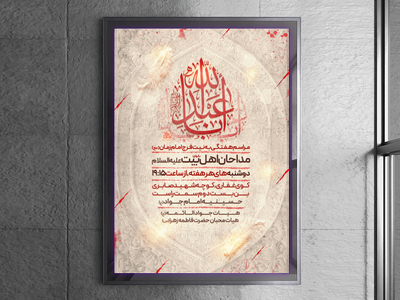 انا عبدالله
مراسم هفتگی به نیت فرج امام زمان (عج)
مداحان اهل بیت علیه السلام
دوشنبه های هر هفته، از ساعت ۱۹:۱۵
کوی غفاری کوچه شهید صابری
بن بست دوم سمت راست
حسینیه امام جواد (ع)
هیات جواد الائمه (ع)
هیات محبان حضرت فاطمه زهرا (س)